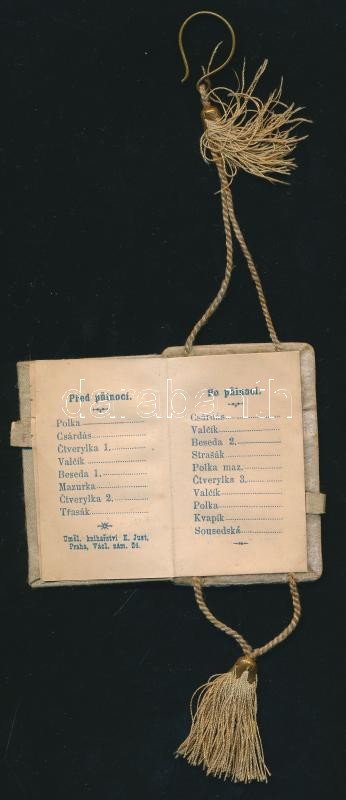 Před půlnocí.
Polka
Csárdás
Čtverylka 1.
Valčík
Beseda 1.
Mazurka
Čtverylka 2.
Třasák
Uměl. knihařství K. Just,
Praha, Václ. nám.
Po půlnoci.
Csárdás
Valčík
Beseda 2.
Strašák
Polka maz.
Čtverylka 3.
Valčík
Polka
Kvapík
Sousedská
darabanth